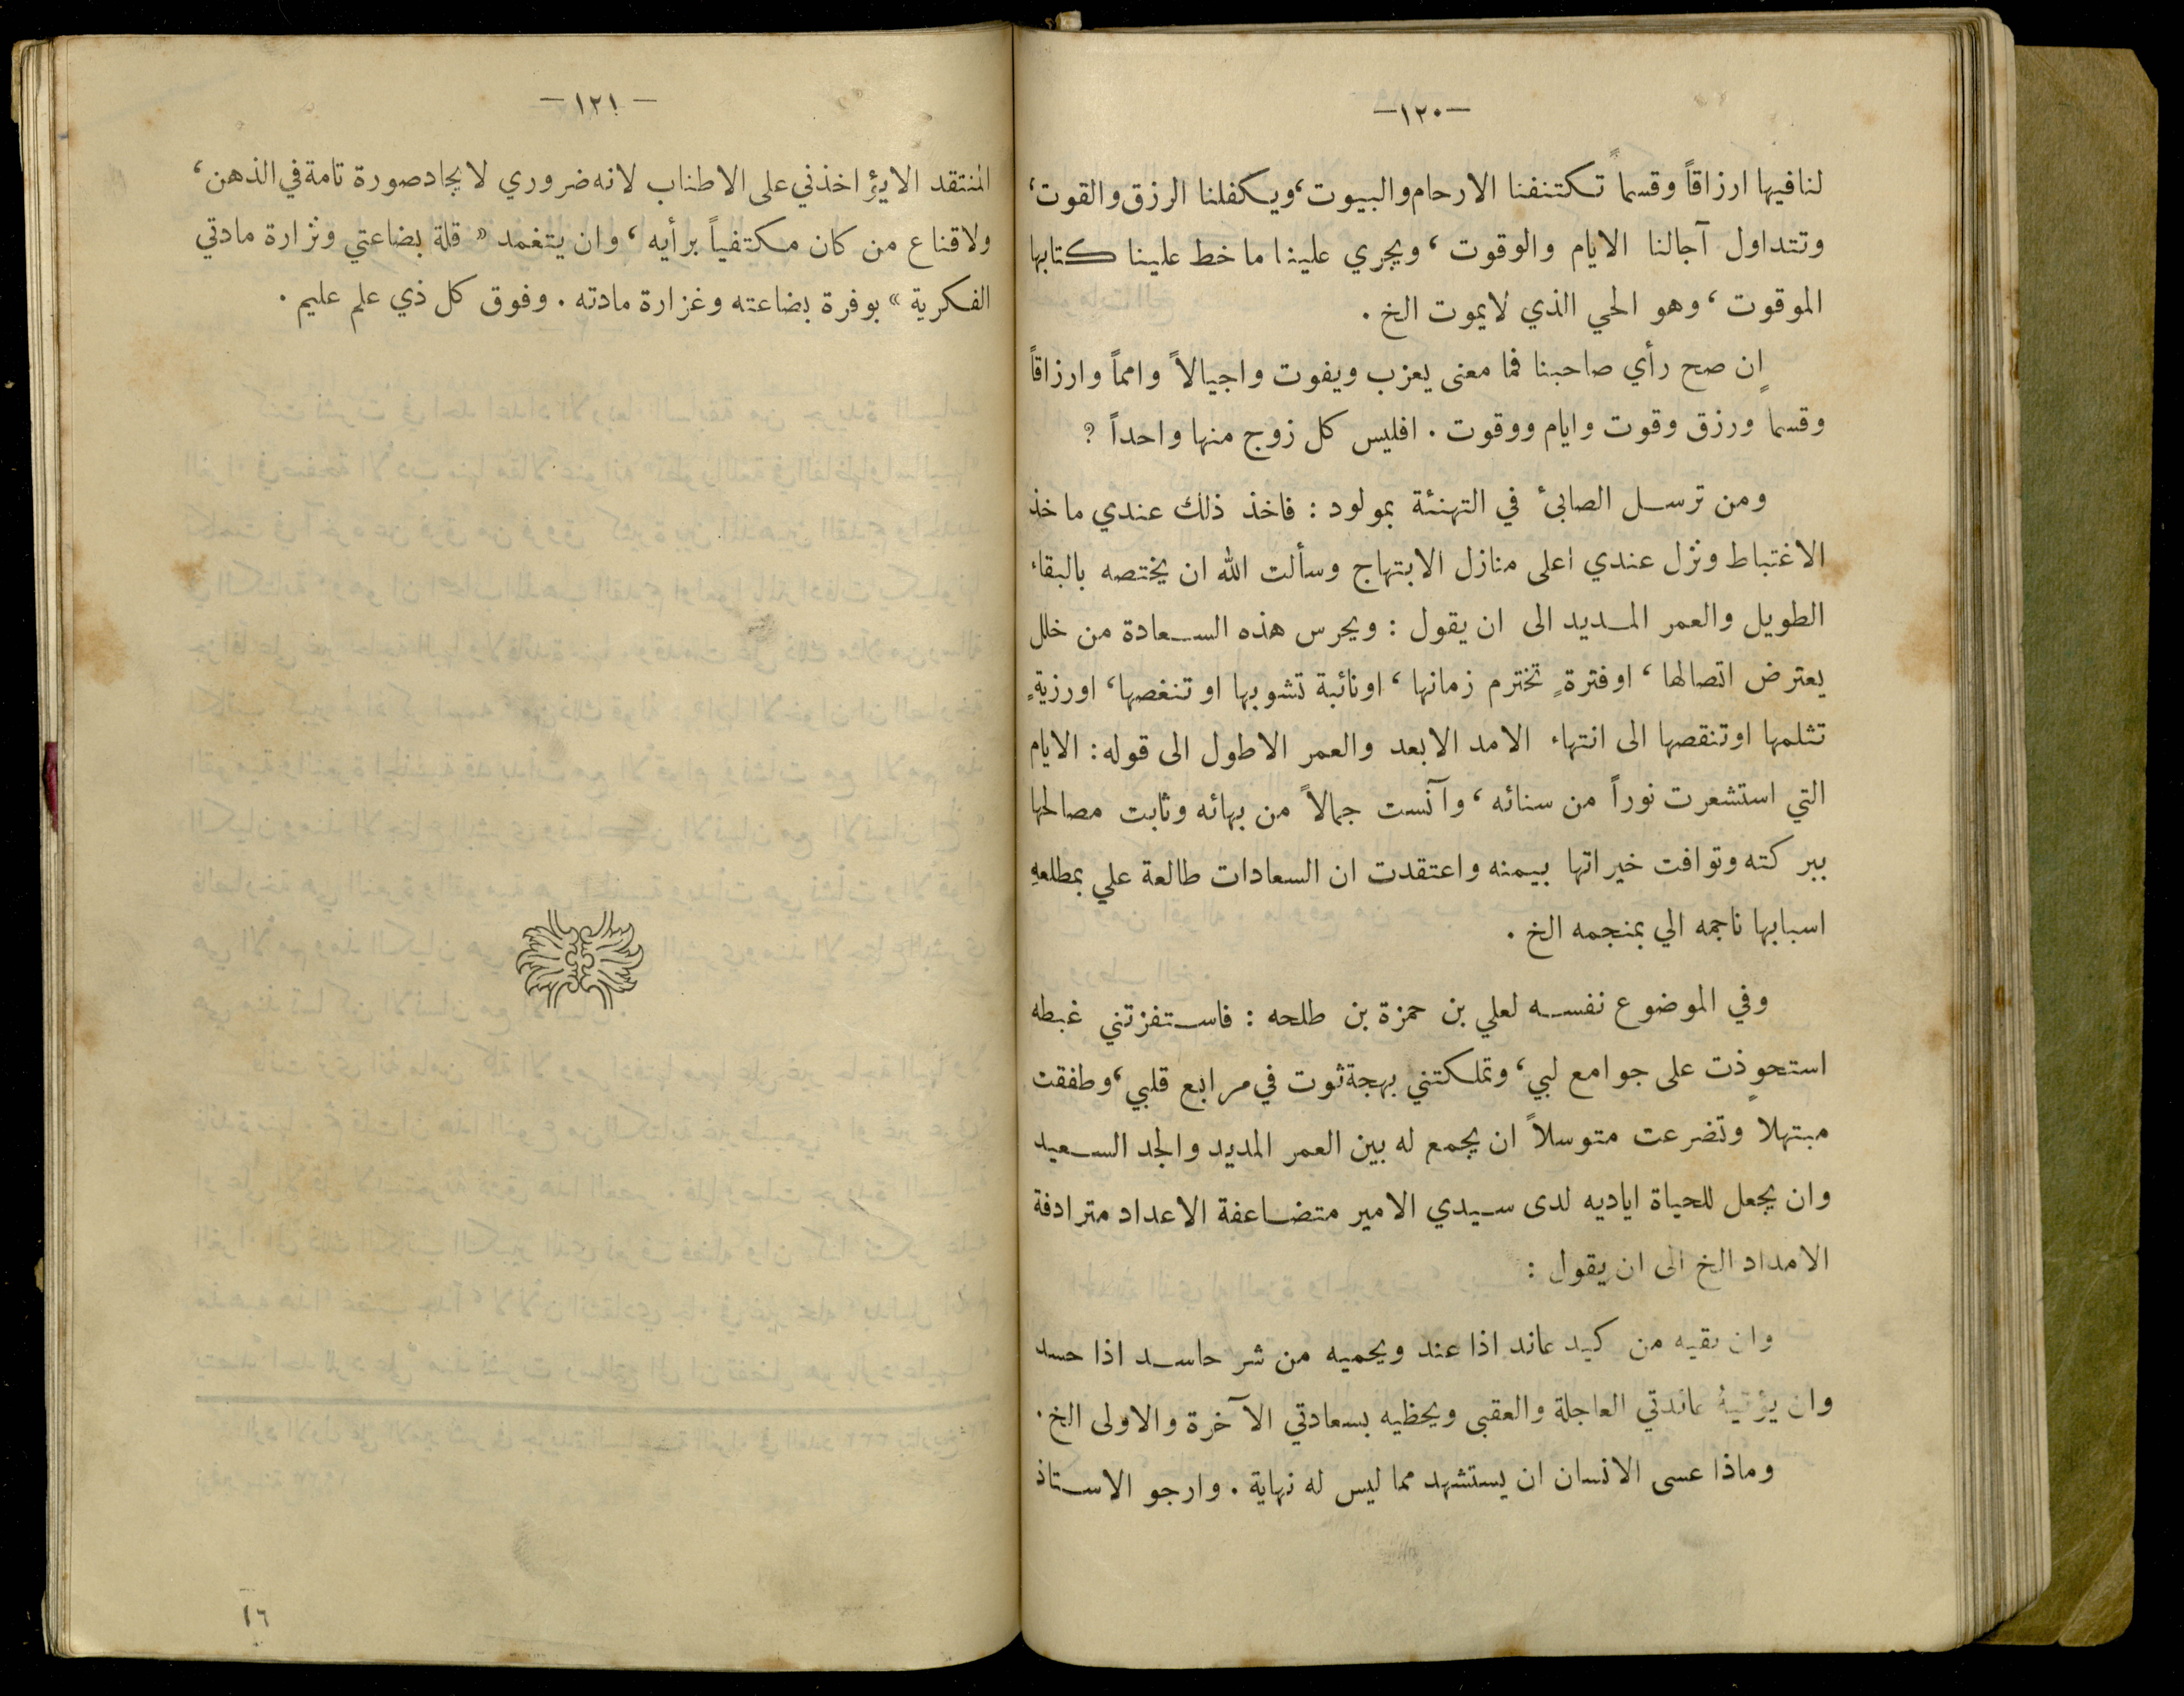 —١٢٠—
لنا فيها ارزاقاً وقسماً تكتنفنا الارحام والبيوت، ويكفلنا الرزق والقوت،
وتتداول آجالنا الايام والوقوت، ويجري علينا ما خط علينا كتابها
الموقوت، وهو الحي الذي لايموت الخ.
اِن صح رأي صاحبنا فما معنى يعزب ويفوت واجيالاً وامماً وارزاقاً
وقسماً ورزق وقوت وايام ووقوت. افليس كل زوج منها واحداً ؟
ومن ترسل الصابئ في التهنئة بمولود : فاخذ ذلك عندي ماخذ
الاغتباط ونزل عندي اعلى منازل الابتهاج وسألت الله ان يختصه بالبقاء
الطويل والعمر المديد الى ان يقول : ويحرس هذه السعادة من خلل
يعترض اتصالها، اوفترةٍ تخترم زمانها، اونائبة تشوبها او تنغصها، اورزيةٍ
تثلمها اوتنقصها الى انتهاء الامد الابعد والعمر الاطول الى قوله : الايام
التي استشعرت نوراً من سنائه، وآنست جمالاً من بهائه وثابت مصالحها
ببركته وتوافت خيراتها بيمنه واعتقدت ان السعادات طالعة علي بمطلعهِ
اسبابها ناجمه الي بمنجمه الخ.
وفي الموضوع نفسه لعلي بن حمزة بن طلحه : فاستفزتني غبطه
استحوذت على جوامع لبي، وتملكتني بهجة ثوت في مرابع قلبي، وطفقت
مبتهلا وتضرعت متوسلاً ان يجمع له بين العمر المديد والجد السعيد
وان يجعل للحياة اياديه لدى سيدي الامير متضاعفة الاعداد مترادفة
الامداد الخ الى ان يقول :
وان يقيه من كيد عاند اذا عند ويحميه من شر حاسد اذا حسد
وان يؤتيهُ عائدتي العاجلة والعقبى ويحظيه بسعادتي الآخرة والاولى الخ.
وماذا عسى الانسان ان يستشهد مما ليس له نهاية. وارجو الاستاذ
— ١٢١ —
المنتقد الا يؤاخذني على الاطناب لانه ضروري لايجاد صورة تامة في الذهن،
ولاقناع من كان مكتفياً برأيه، وان يتغمد « قلة بضاعتي ونزارة مادتي
الفكرية » بوفرة بضاعته وغزارة مادته. وفوق كل ذي علم عليم.
١٦